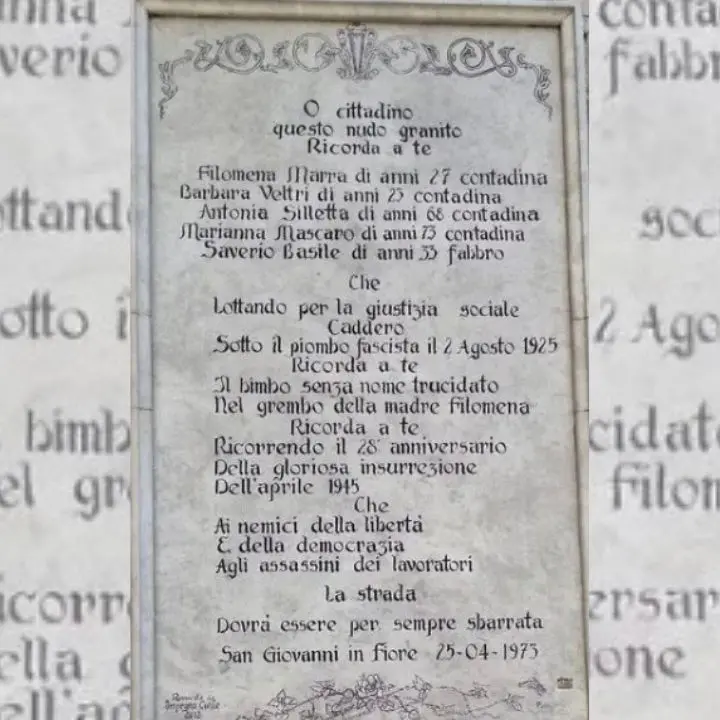 O cittadino
questo nudo granito
Ricorda a te
Filomena Marra di anni 27 contadina
Barbara Veltri di anni 23 contadina
Antonia Silletta di anni 68 contadina
Marianna Mascaro di anni 73 contadina
Saverio Basile di anni 33 fabbro
Che
Lottando per la giustizia sociale
Caddero
Sotto il piombo fascista il 2 Agosto 1925
Ricorda a te
Il bimbo senza nome trucidato
Nel grembo della madre Filomena
Ricorda a te
Ricorrendo il 28° anniversario
Della gloriosa insurrezione
Dell'aprile 1945
Che
Ai nemici della libertà
E della democrazia
Agli assassini dei lavoratori
La strada
Dovrà essere per sempre sbarrata
San Giovanni in Fiore 25-04-1973